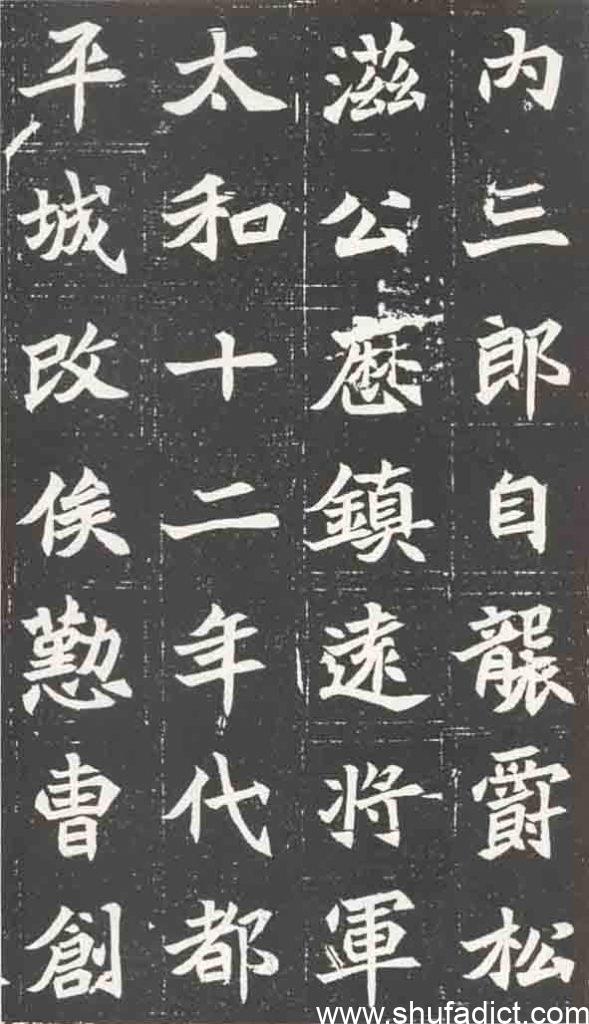 内三郎自襲爵松
滋公歷鎮遠將軍
太和十二年代都
平城改俟懃曹創
www.shufadict.com